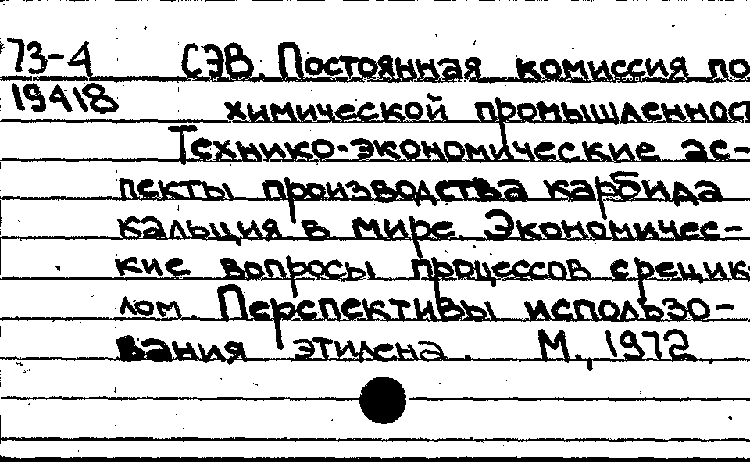 73-4 СЭВ. Постоянная комиссия по
19418 химической промышленнос
Технико-экономические ас-
пекты производства карбида
кальция в мире. Экономичес-
кие вопросы процессов с рецик-
лом. Перспективы использо-
вания этилена. М., 1972